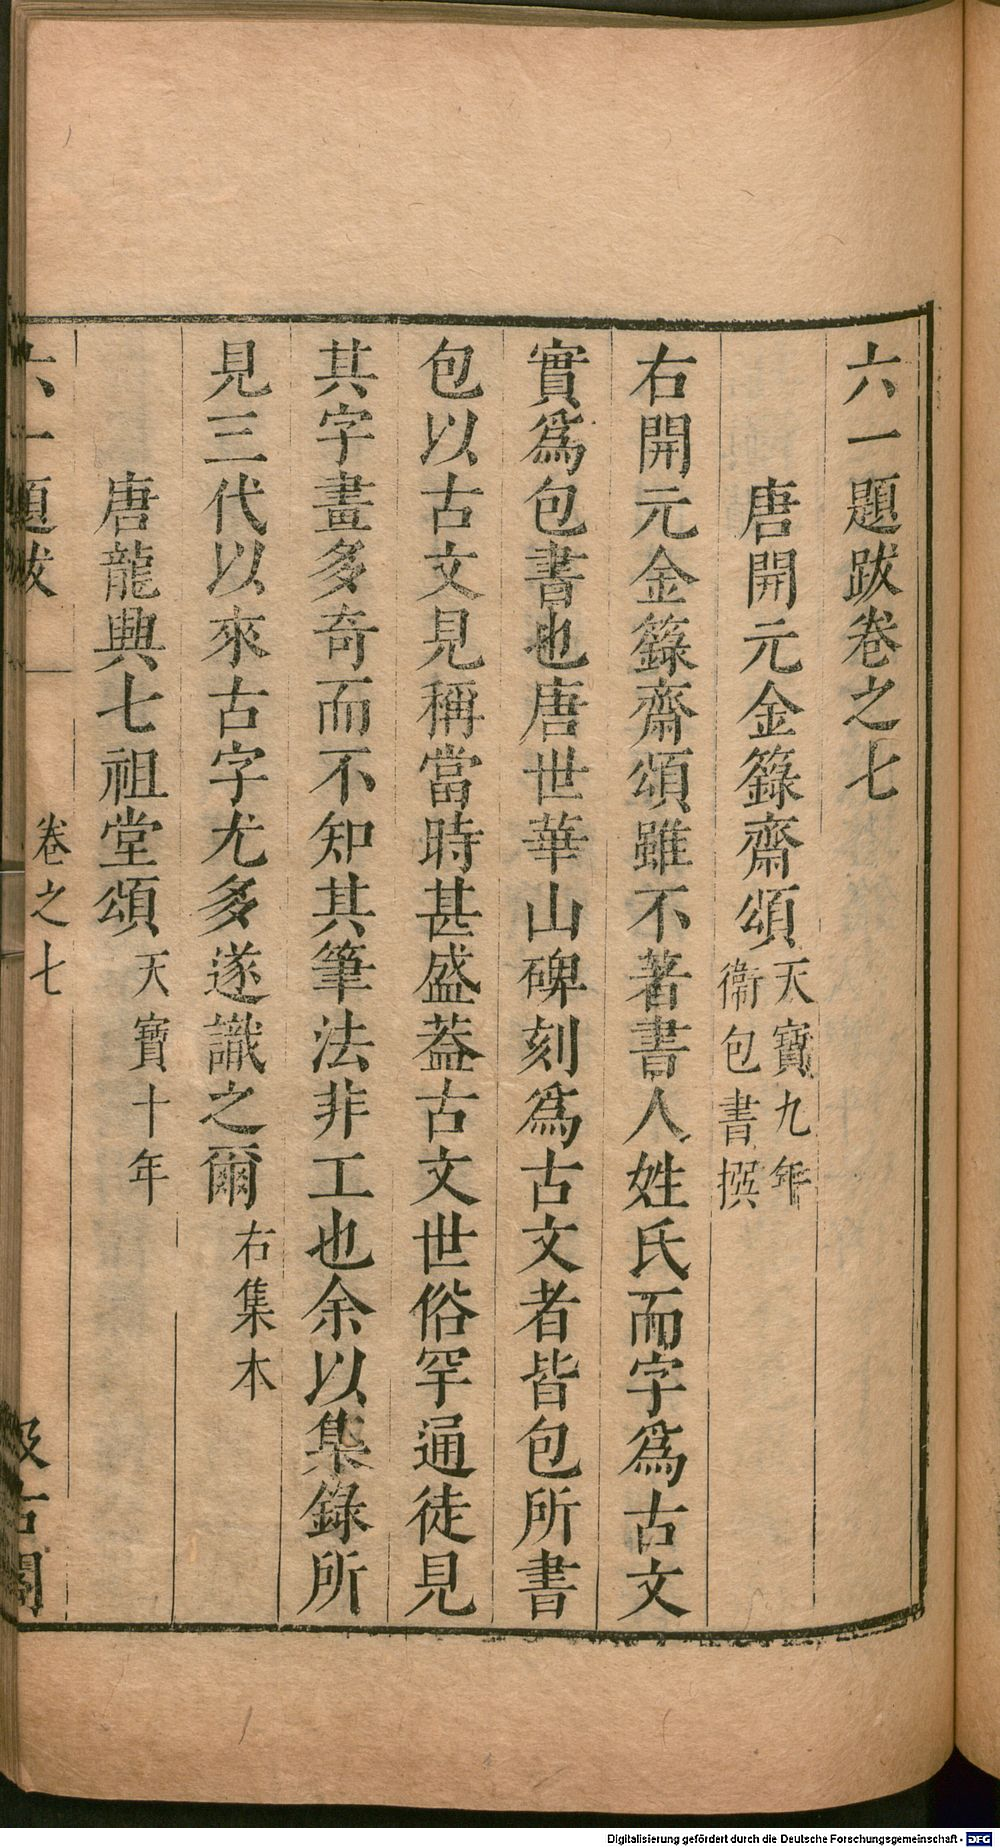 六一題跋卷之七
唐開元金籙齋頌天寶九年
衞包書撰
右開元金籙齋頌雖不著書人姓氏而字爲古文
實爲包書也唐世華山碑刻爲古文者皆包所書
包以古文見稱當時甚盛葢古文世俗罕通徒見
其字畫多奇而不知其筆法非工也余以集錄所
見三代以來古字尤多遂識之爾右集本
唐龍興七祖堂頌天寶十年
六一題跋 卷之七 汲古閣
Digitalisierung gefördert durch die Deutsche Forschungsgemeinschaft - DFG